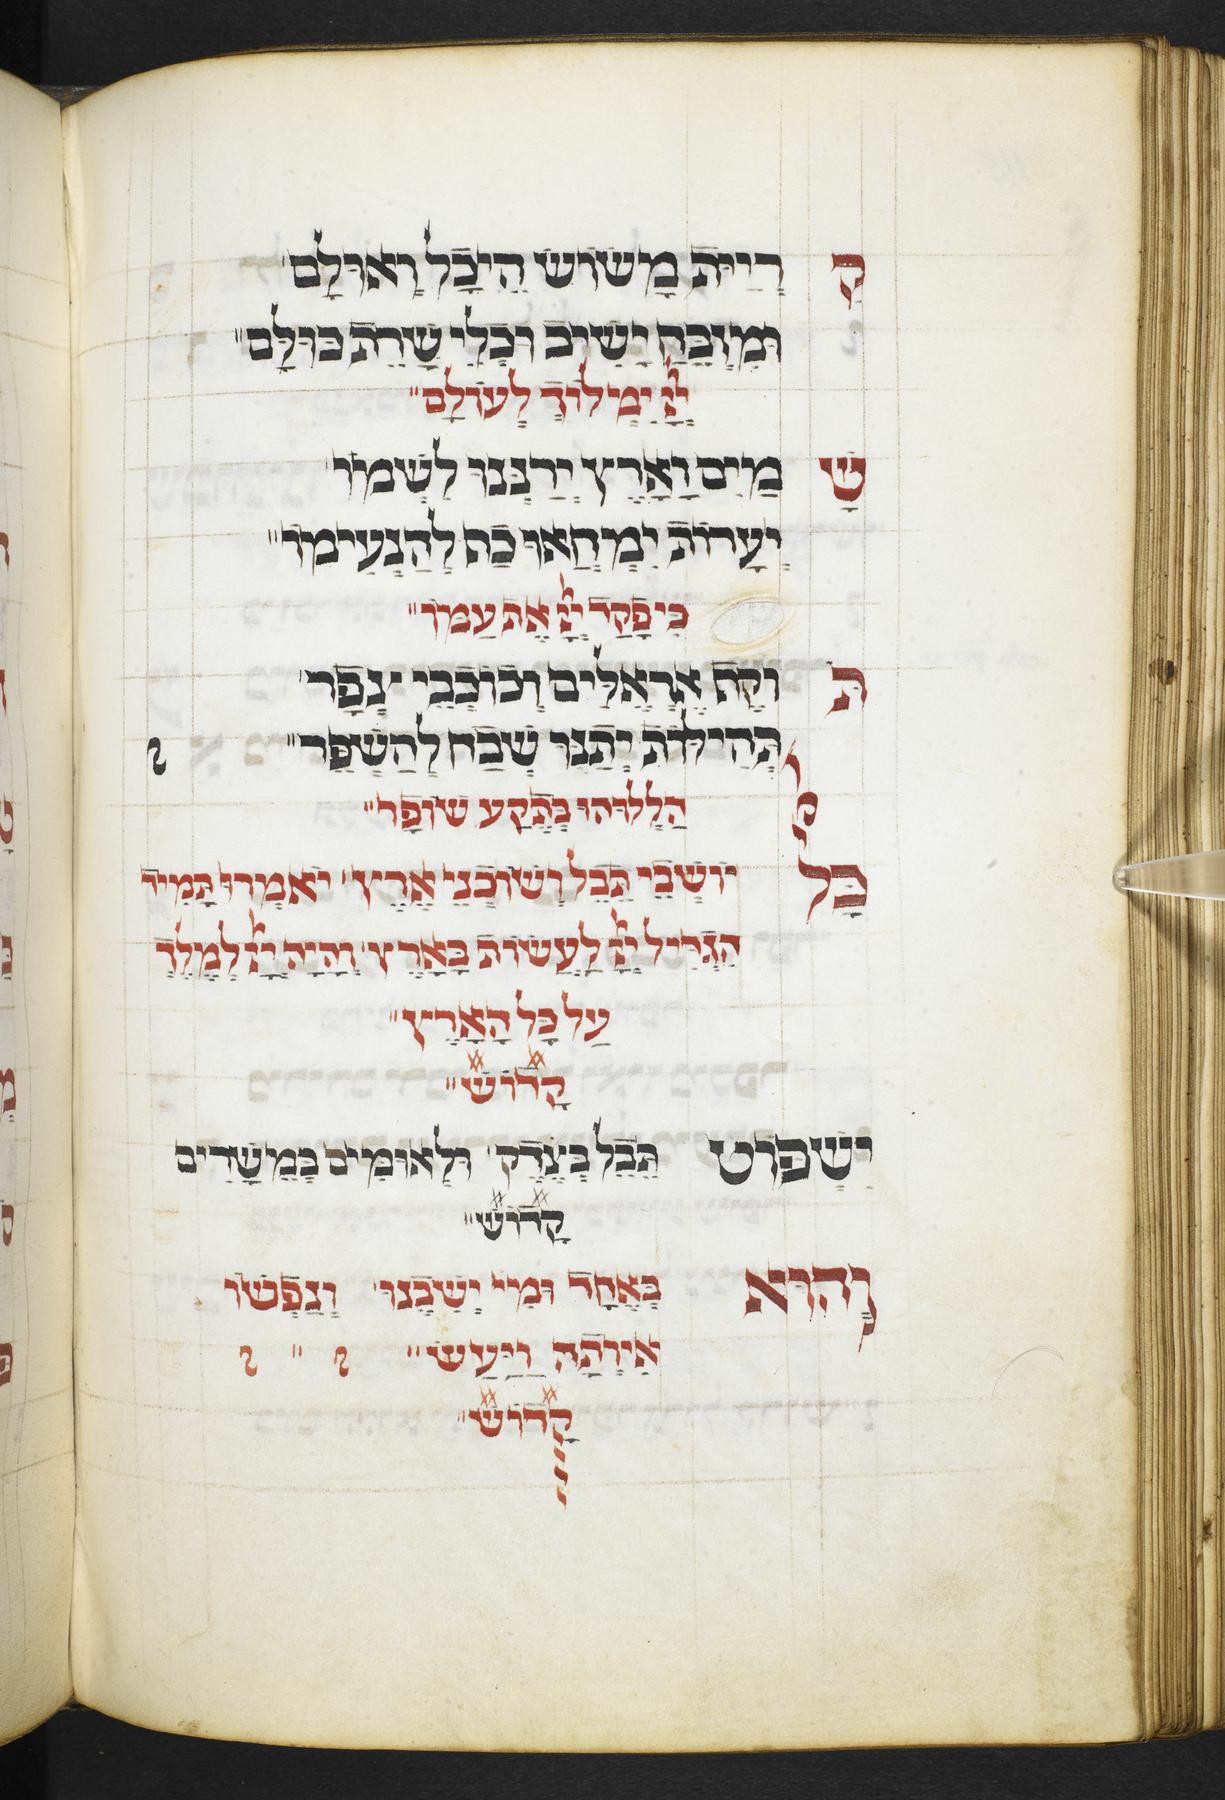 קִרְיַית מָשׂוֹשׂ הֵיכָל וְאוּלָם
וּמִזְבֵּחַ יָשִׁיב וּכְלֵי שָׁרֵת כּוּלָּם׃
יְיָ יִמְלוֹךְ לְעוֹלָם׃
שָׁמַיִם וָאָרֶץ יְרַנְּנוּ לִשְׁמוֹ
יְעָרוֹת יִמְחֲאוּ כַף לְהַנְעִימוֹ׃
כִּי פָקַד יְיָ אֶת עַמּוֹ׃
תּוֹקֶף אֶרְאֶלִּים וְכוֹכְבֵי צֶפֶר
תְּהִילּוֹת יִתְּנוּ שֶׁבַח לְהַשְׁפֵּר׃
הַלְלוּהוּ בְּתֵקַע שׁוֹפָר׃
כָּל יוֹשְׁבֵי תֵבֵל וְשׁוֹכְנֵי אָרֶץ יֹאמְרוּ תָמִיד
הִגְדִּיל יְיָ לַעֲשׂוֹת בָּאָרֶץ וְהָיָה יְיָ לְמֶלֶךְ
עַל כָּל הָאָרֶץ׃
קָדוֹשׁ׃
יִשְׁפּוֹט תֵּבֵל בְּצֶדֶק וּלְאוּמִּים בְּמֵשָׁרִים
קָדוֹשׁ׃
וְהוּא בְאֶחָד וּמִי יְשִׁיבֶנּוּ וְנַפְשׁוֹ
אִיוְּתָה וַיַּעַשׂ׃
קָדוֹשׁ׃